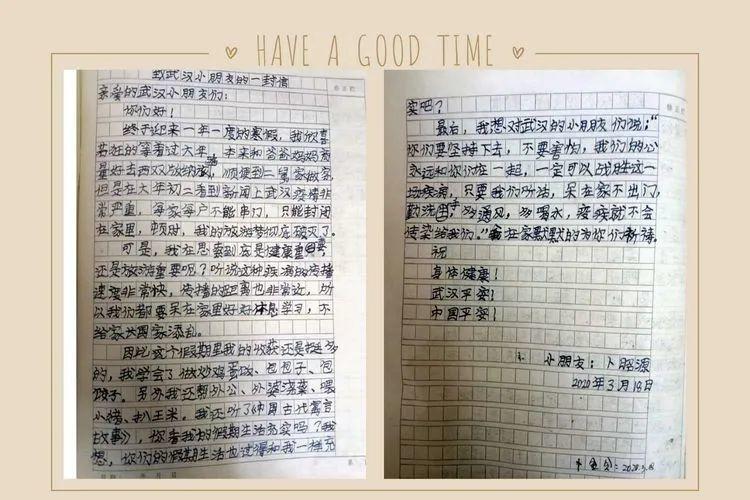 HAVE A GOOD TIME
致武汉小朋友的一封信
亲爱的武汉小朋友们:
你们好!
终于迎来一年一度的寒假,我欣喜
若狂的等着过大年,本来和爸爸妈妈商
量好去西双版纳旅游,顺便到二舅家做客
但是在大年初二看到新闻上武汉疫情非
常严重,每家每户不能串门,只能封闭
在家里,顿时,我的旅游梦彻底破灭了。
可是,我在思索到底是健康重要,
还是旅游重要呢?听说这种疾病的传播
速度非常快,传播的距离也非常近,所
以我们都要呆在家里好好休息学习,不
给家大国家添乱。
因此这个假期里我的收获还是挺多
的,我学会了做炒鸡蛋饭、包包子、包
饺子。另外我还帮外公、外婆浇菜、喂
小猪、扒玉米。我还听了《中国古代寓言
故事》,你看我的假期生活充实吗?我
想,你们的假期生活也过得和我一样充
实吧?
最后,我想对武汉的小朋友们说:“
你们要坚持下去,不要害怕,我们的心
永远和你们在一起,一定可以战胜这一
场疾病,只要我们听话,呆在家不出门,
勤洗手,多通风,多喝水,疾病就不会
传染给我们。”我在家默默的为你们祈祷。
祝
身体健康!
武汉平安!
中国平安!
小朋友:卜
2020年3月18日